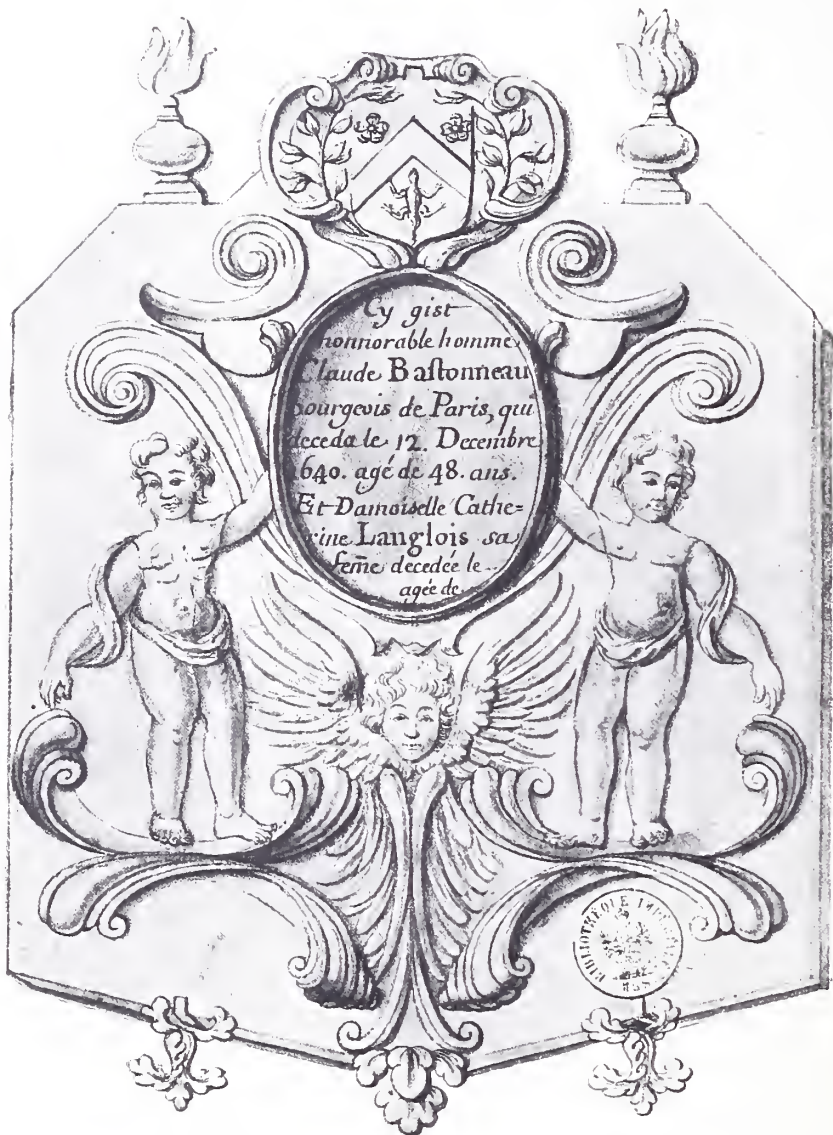 Cy gist
honnorable homme
Claude Bastonneau
bourgeois de Paris, qui
deceda le 12. Decembre
1640. agé de 48. ans.
Et Damoiselle Cathe=
rine Langlois sa
fem̄e decedée le
agée de
BIBLIOTHEQUE